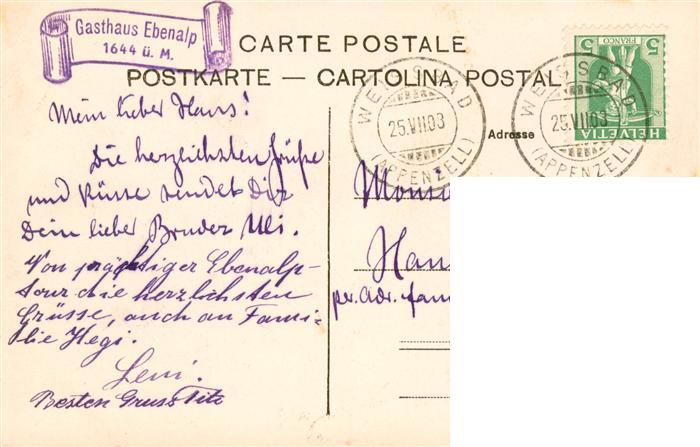 Gasthaus Ebenalp
1644 ü. M.
CARTE POSTALE
POSTKARTE — CARTOLINA POSTAL
5 FRANCO 5
HELVETIA
WEISSBAD
25.VII.03
(APPENZELL)
WEISSBAD
25.VII.03
(APPENZELL)
Adresse
Mein lieber Hans!
Die herzlichsten Grüße
und Küsse sendet Dir
Dein lieber Bruder Uli.
Von prächtiger Ebenalp-
tour die herzlichsten
Grüsse, auch an Fami-
lie Hegi.
Leni.
Besten Gruss
Monsi
Han
per. Adr. Fam